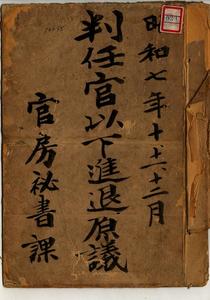 昭和七年十、十一、十二月
判任官以下進退原議
官房秘書課